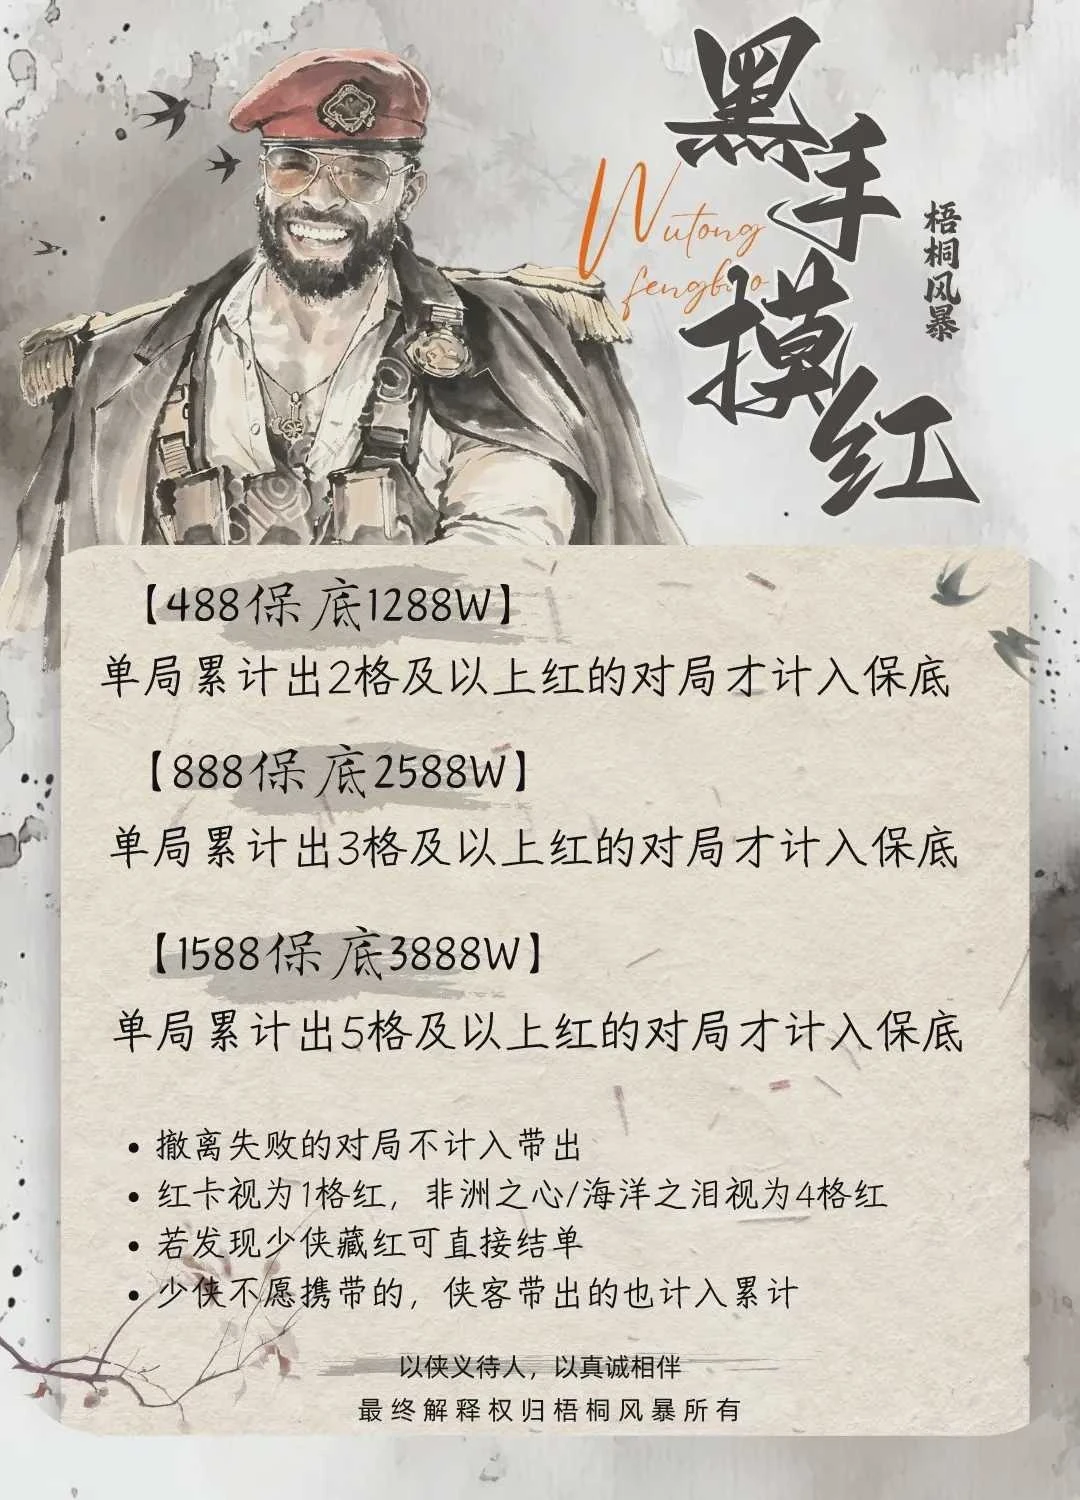 黑手摸红
Wutong
fengbao
梧桐风暴
【488保底1288W】
单局累计出2格及以上红的对局才计入保底
【888保底2588W】
单局累计出3格及以上红的对局才计入保底
【1588保底3888W】
单局累计出5格及以上红的对局才计入保底
• 撤离失败的对局不计入带出
• 红卡视为1格红，非洲之心/海洋之泪视为4格红
• 若发现少侠藏红可直接结单
• 少侠不愿携带的，侠客带出的也计入累计
以侠义待人，以真诚相伴
最终解释权归梧桐风暴所有